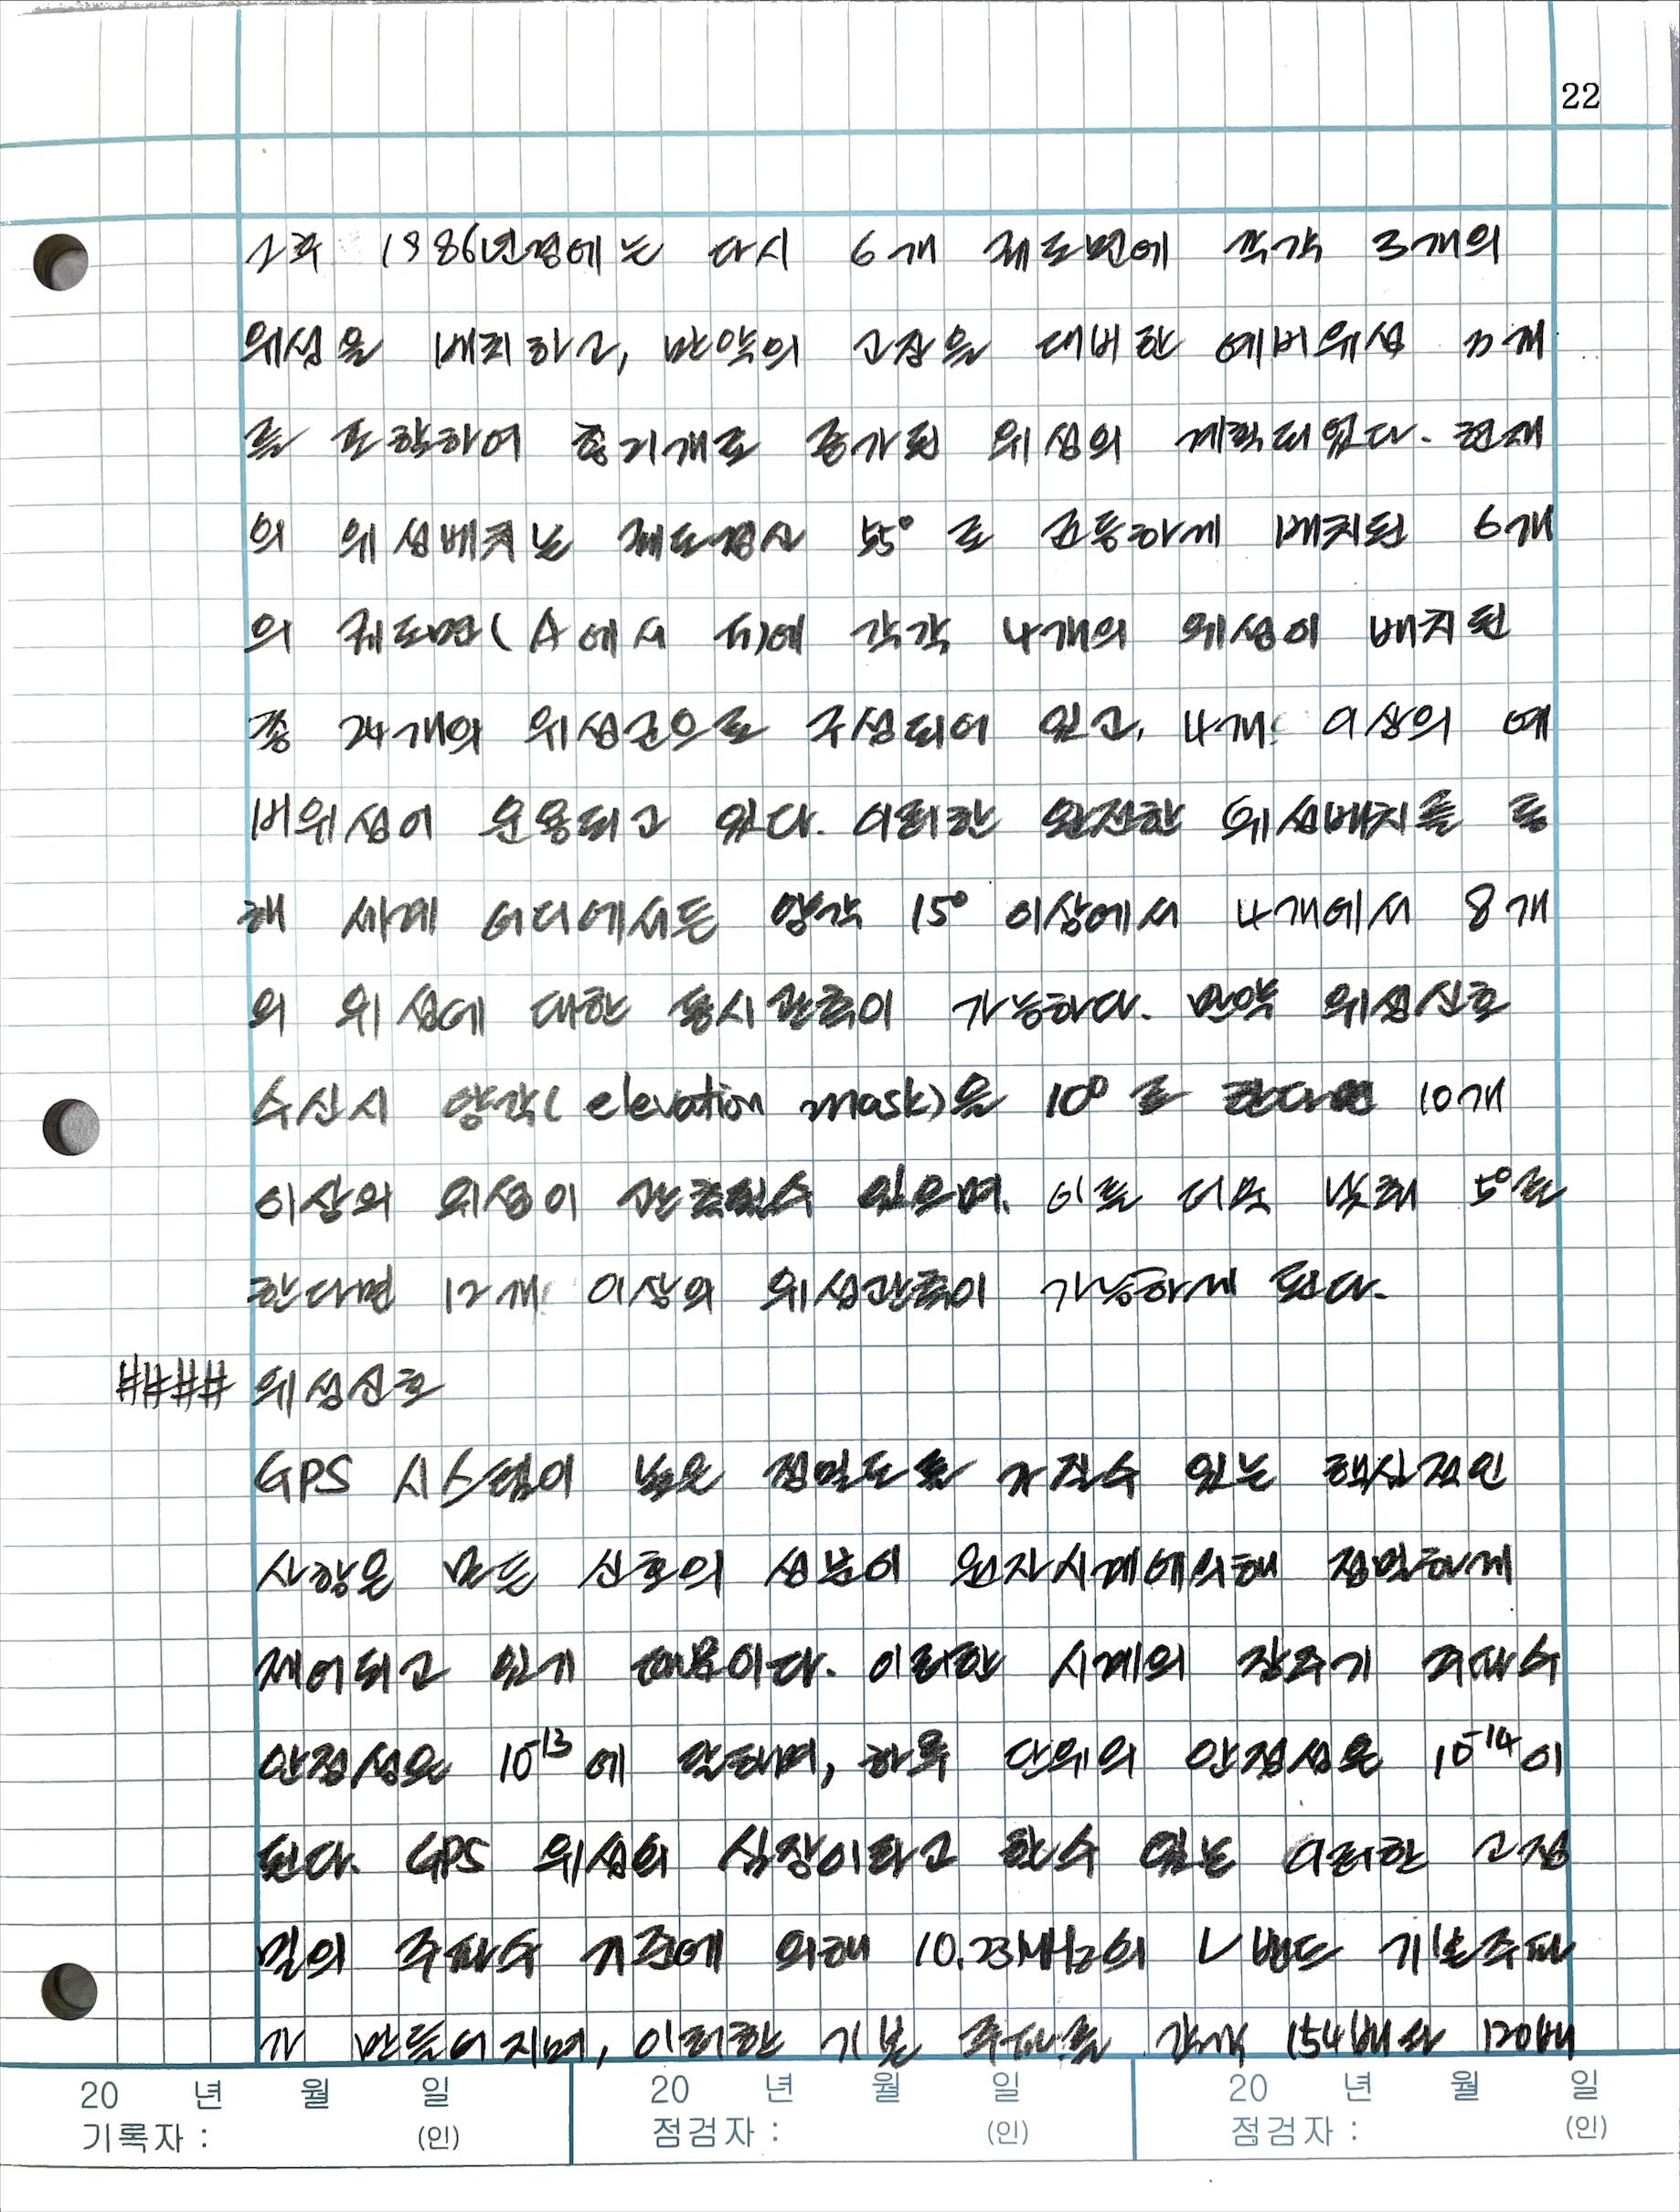 22
그후 1986년경에는 다시 6개 궤도면에 각각 3개의
위성을 배치하고, 만약의 고장을 대비한 예비위성 3개
를 포함하여 총21개로 증가된 위성의 계획되었다. 현재
의 위성배치는 궤도경사 55°로 균등하게 배치된 6개
의 궤도면(A에서 F)에 각각 4개의 위성이 배치된
총 24개의 위성군으로 구성되어 있고, 4개 이상의 예
비위성이 운용되고 있다. 이러한 완전한 위성배치를 통
해 세계 어디에서든 앙각 15° 이상에서 4개에서 8개
의 위성에 대한 동시관측이 가능하다. 만약 위성신호
수신시 앙각(elevation mask)을 10°로 한다면 10개
이상의 위성이 관측될수 있으며, 이를 더욱 낮춰 5°로
한다면 12개 이상의 위성관측이 가능하게 된다.
#### 위성신호
GPS 시스템이 높은 정밀도를 가질수 있는 핵심적인
사항은 모든 신호의 성분이 원자시계에의해 정밀하게
제어되고 있기 때문이다. 이러한 시계의 장주기 주파수
안정성은 10⁻¹³에 달하며, 하루 단위의 안정성은 10⁻¹⁴이
된다. GPS 위성의 심장이라고 할수 있는 이러한 고정
밀의 주파수 기준에 의해 10.23MHz의 L밴드 기본주파
가 만들어지며, 이러한 기본 주파를 각각 154배와 120배
20 년 월 일 20 년 월 일 20 년 월 일
기록자 : (인) 점검자 : (인) 점검자 : (인)